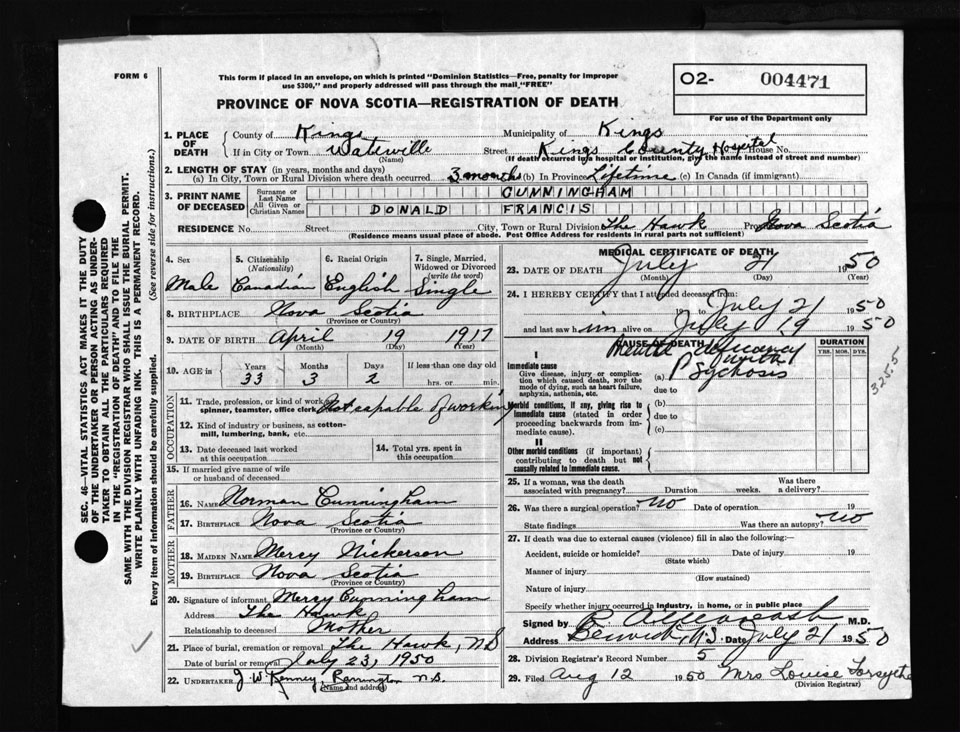 FORM 6
This form if placed in an envelope, on which is printed "Dominion Statistics—Free, penalty for improper
use $300," and properly addressed will pass through the mail "FREE"
O2- 004471
For use of the Department only
PROVINCE OF NOVA SCOTIA—REGISTRATION OF DEATH
SEC. 46—VITAL STATISTICS ACT MAKES IT THE DUTY
OF THE UNDERTAKER OR PERSON ACTING AS UNDER-
TAKER TO OBTAIN ALL THE PARTICULARS REQUIRED
IN THE "REGISTRATION OF DEATH" AND TO FILE THE
SAME WITH THE DIVISION REGISTRAR WHO SHALL ISSUE THE BURIAL PERMIT.
WRITE PLAINLY WITH UNFADING INK. THIS IS A PERMANENT RECORD.
Every item of Information should be carefully supplied. (See reverse side for instructions.)
1. PLACE OF DEATH County of Kings Municipality of Kings
If in City or Town Waterville (Name) Street Kings County Hospital House No.
(If death occurred in a hospital or institution, give the name instead of street and number)
2. LENGTH OF STAY (in years, months and days)
(a) In City, Town or Rural Division where death occurred 3 months (b) In Province Lifetime (c) In Canada (if immigrant)
3. PRINT NAME OF DECEASED Surname or Last Name CUNNINGHAM
All Given or Christian Names DONALD FRANCIS
RESIDENCE No. Street City, Town or Rural Division The Hawk Nova Scotia
(Residence means usual place of abode. Post Office Address for residents in rural parts not sufficient)
4. Sex 5. Citizenship (Nationality) 6. Racial Origin 7. Single, Married, Widowed or Divorced (write the word)
Male Canadian English Single
8. BIRTHPLACE Nova Scotia
(Province or Country)
9. DATE OF BIRTH April 19 1917
(Month) (Day) (Year)
10. AGE in Years Months Days If less than one day old
33 3 2 hrs. or min.
OCCUPATION
11. Trade, profession, or kind of work as
spinner, teamster, office clerk Not capable of working
12. Kind of industry or business, as cotton-
mill, lumbering, bank, etc.
13. Date deceased last worked at this occupation 14. Total yrs. spent in this occupation
15. If married give name of wife
or husband of deceased
FATHER
16. Name Norman Cunningham
17. BIRTHPLACE Nova Scotia
(Province or Country)
MOTHER
18. MAIDEN NAME Mercy Nickerson
19. BIRTHPLACE Nova Scotia
(Province or Country)
20. Signature of informant Mercy Cunningham
Address The Hawk
Relationship to deceased Mother
21. Place of burial, cremation or removal The Hawk, NS
Date of burial or removal July 23, 1950
22. UNDERTAKER J. W. Kenney, Barrington N.S.
(Name and address)
MEDICAL CERTIFICATE OF DEATH
23. DATE OF DEATH July 21 1950
(Month) (Day) (Year)
24. I HEREBY CERTIFY that I attended deceased from:
19 to July 21 1950
and last saw him alive on July 19 1950
CAUSE OF DEATH DURATION
YRS. MOS. DYS.
I
Immediate cause
Give disease, injury or complica-
tion which caused death, not the
mode of dying, such as heart failure,
asphyxia, asthenia, etc.
Mental deficiency
with
(a) Psychosis
3255
due to
Morbid conditions, if any, giving rise to
immediate cause (stated in order
proceeding backwards from im-
mediate cause).
(b)
due to
(c)
II
Other morbid conditions (if important)
contributing to death but not
causally related to immediate cause.
25. If a woman, was the death
associated with pregnancy? Duration weeks. Was there a delivery?
26. Was there a surgical operation? No Date of operation 19
State findings Was there an autopsy? No
27. If death was due to external causes (violence) fill in also the following:—
Accident, suicide or homicide? Date of injury 19
(State which)
Manner of injury
(How sustained)
Nature of injury
Specify whether injury occurred in industry, in home, or in public place
Signed by M.D.
Address Berwick, N.S. Date July 21 1950
28. Division Registrar's Record Number 5
29. Filed Aug 12 1950 Mrs Louise Forsythe
(Division Registrar)